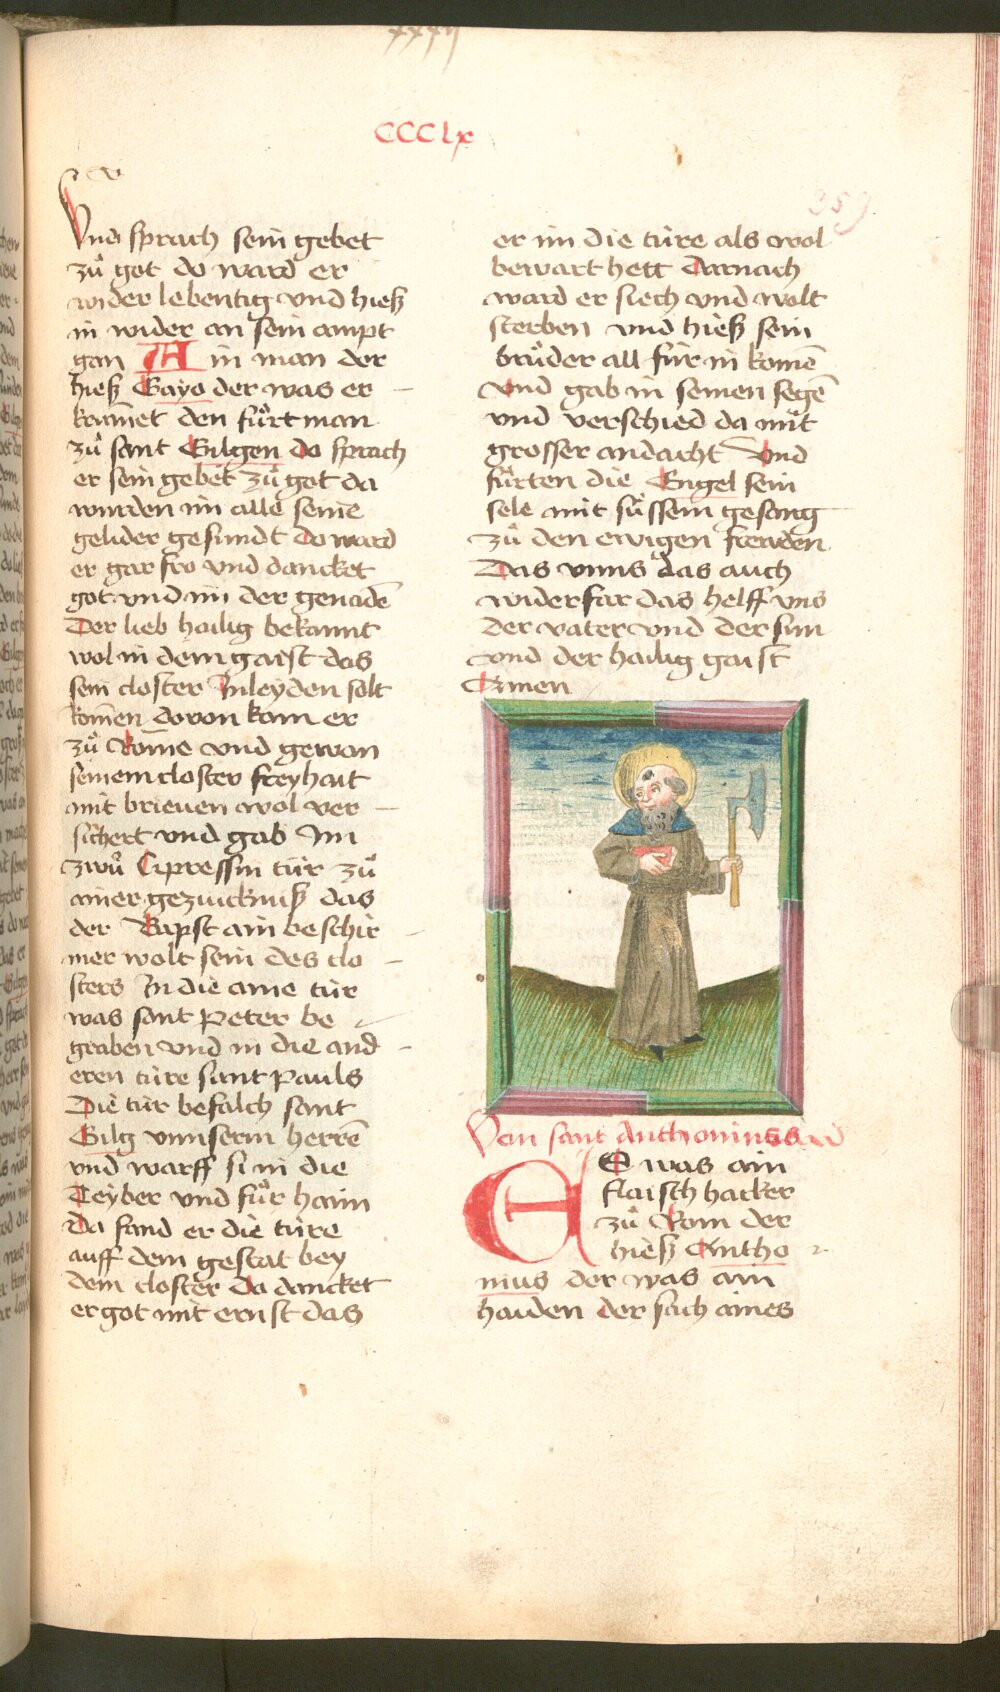 CCCLx
359
Vnd sprach sein gebet
zů got do ward er
wider lebentig vnd hieß
in wider an sein ampt
gan Ain man der
hieß Gayo der was er
kru̅met den fůrt man
zů sant Gilgen do sprach
er sein gebet zů got da
wurden im alle seine
gelider gesundt Do ward
er gar fro vnd dancket
got vnd im der genade̅
Der lieb hailig bekannt
wol in dem gaist das
sein closter Inleyden solt
kome̅n doron kam er
zů Rome vnd gewan
seinem closter freyhait
mit brieuen wol ver
sichert vnd gab Im
zwů Cipressin tür zů
ainer gezucknuß das
der Bapst ain beschir
mer wolt sein des clo
sters In die aine tür
was sant Peter be
graben vnd in die and
eren türe sant Pauls
Die tür befalch sant
Gilg vnnserm herre̅
vnd warff si in die
Teyber vnd fůr haim
Da fand er die türe
auff dem gestat bey
dem closter Da dancket
er got mit ernst das
er im die türe als wol
bewart hett Darnach
ward er siech vnd wolt
sterben vnd hieß sein
brůder all für in kome̅
Vnd gab in seinen sege̅
vnd verschied da mit
grosser andacht Vnd
fůrten die Engel sein
sele mit sůssem gesang
zů den ewigen frewden
Das vnns das auch
widerfar das helff vns
der vater vnd der sun
vnd der hailig gaist
Amen
Von sant Anthoninss
ES was ain
flaisch hacker
zů Rom der
hieß Antho
nius der was ain
haiden der sach aines